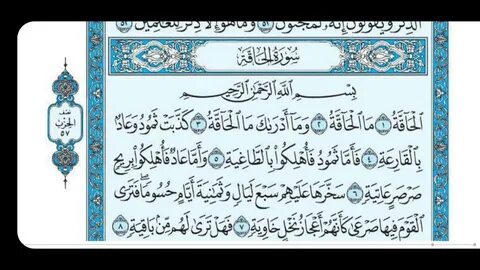 الذِّكْرَ وَيَقُولُونَ إِنَّهُۥ لَمَجْنُونٌ ۝٥١ وَمَا هُوَ إِلَّا ذِكْرٌ لِّلْعَٰلَمِينَ ۝٥٢
سُورَةُ الحَاقَّةِ
بِسْمِ ٱللَّهِ ٱلرَّحْمَٰنِ ٱلرَّحِيمِ
ٱلْحَاقَّةُ ۝١ مَا ٱلْحَاقَّةُ ۝٢ وَمَآ أَدْرَىٰكَ مَا ٱلْحَاقَّةُ ۝٣ كَذَّبَتْ ثَمُودُ وَعَادٌۢ
بِٱلْقَارِعَةِ ۝٤ فَأَمَّا ثَمُودُ فَأُهْلِكُوا۟ بِٱلطَّاغِيَةِ ۝٥ وَأَمَّا عَادٌ فَأُهْلِكُوا۟ بِرِيحٍ
صَرْصَرٍ عَاتِيَةٍ ۝٦ سَخَّرَهَا عَلَيْهِمْ سَبْعَ لَيَالٍ وَثَمَٰنِيَةَ أَيَّامٍ حُسُومًاۖ فَتَرَى
ٱلْقَوْمَ فِيهَا صَرْعَىٰ كَأَنَّهُمْ أَعْجَازُ نَخْلٍ خَاوِيَةٍ ۝٧ فَهَلْ تَرَىٰ لَهُم مِّنۢ بَاقِيَةٍ ۝٨
نصف
الحزب
٥٧